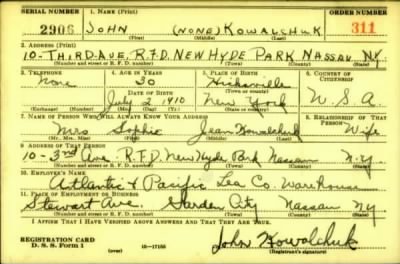 SERIAL NUMBER 1. NAME (Print) ORDER NUMBER
2906 JOHN (NONE) KOWALCHUK 311
(First) (Middle) (Last)
2. ADDRESS (Print)
10-THIRD-AVE, R.F.D. NEW HYDE PARK NASSAU N.Y.
(Number and street or R. F. D. number) (Town) (County) (State)
3. TELEPHONE 4. AGE IN YEARS 5. PLACE OF BIRTH 6. COUNTRY OF CITIZENSHIP
None 30 Hicksville
DATE OF BIRTH (Town or county)
July 2 1910 New York U.S.A.
(Exchange) (Number) (Mo.) (Day) (Yr.) (State or country)
7. NAME OF PERSON WHO WILL ALWAYS KNOW YOUR ADDRESS 8. RELATIONSHIP OF THAT PERSON
Mrs Sophie Jean Kowalchuk Wife
(Mr., Mrs., Miss) (First) (Middle) (Last)
9. ADDRESS OF THAT PERSON
10-3rd Ave R.F.D. New Hyde Park Nassau N.Y.
(Number and street or R. F. D. number) (Town) (County) (State)
10. EMPLOYER'S NAME
Atlantic & Pacific Tea Co. Warehouse
11. PLACE OF EMPLOYMENT OR BUSINESS
Stewart Ave. Garden City Nassau NY
(Number and street or R. F. D. number) (Town) (County) (State)
I AFFIRM THAT I HAVE VERIFIED ABOVE ANSWERS AND THAT THEY ARE TRUE.
REGISTRATION CARD
D. S. S. Form 1 (over) 16-17105 John Kowalchuk
(Registrant's signature)